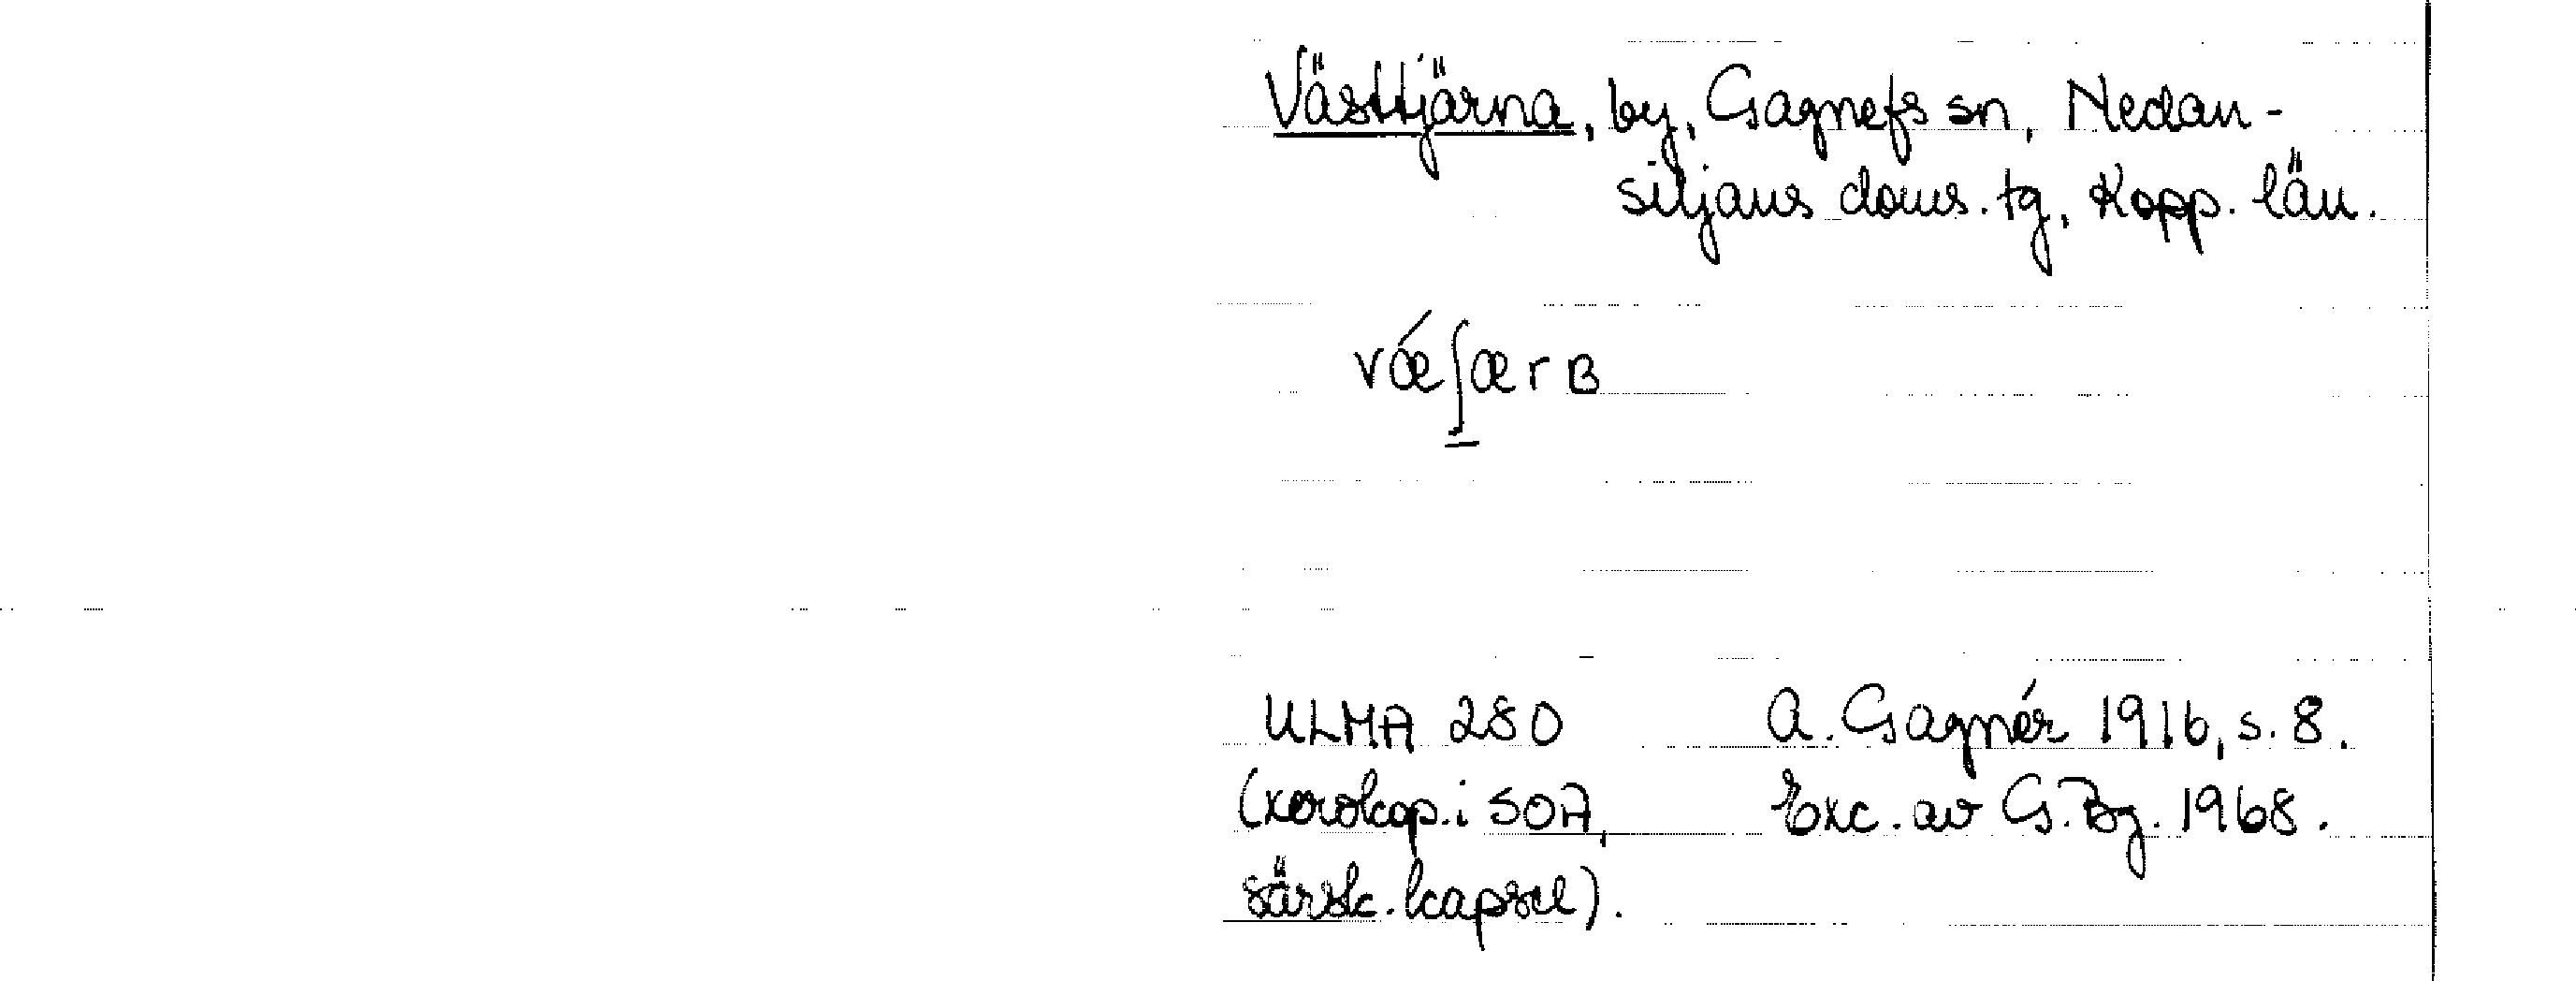 Västtjärna, by, Gagnefs sn, Nedan-
siljans doms. tg, Kopp. län.
vǽʃærʙ
ULMA 280 A. Gagnér 1916, s. 8.
(xerokop. i SOA, Exc. av G. Bg. 1968.
särsk. kapsel).